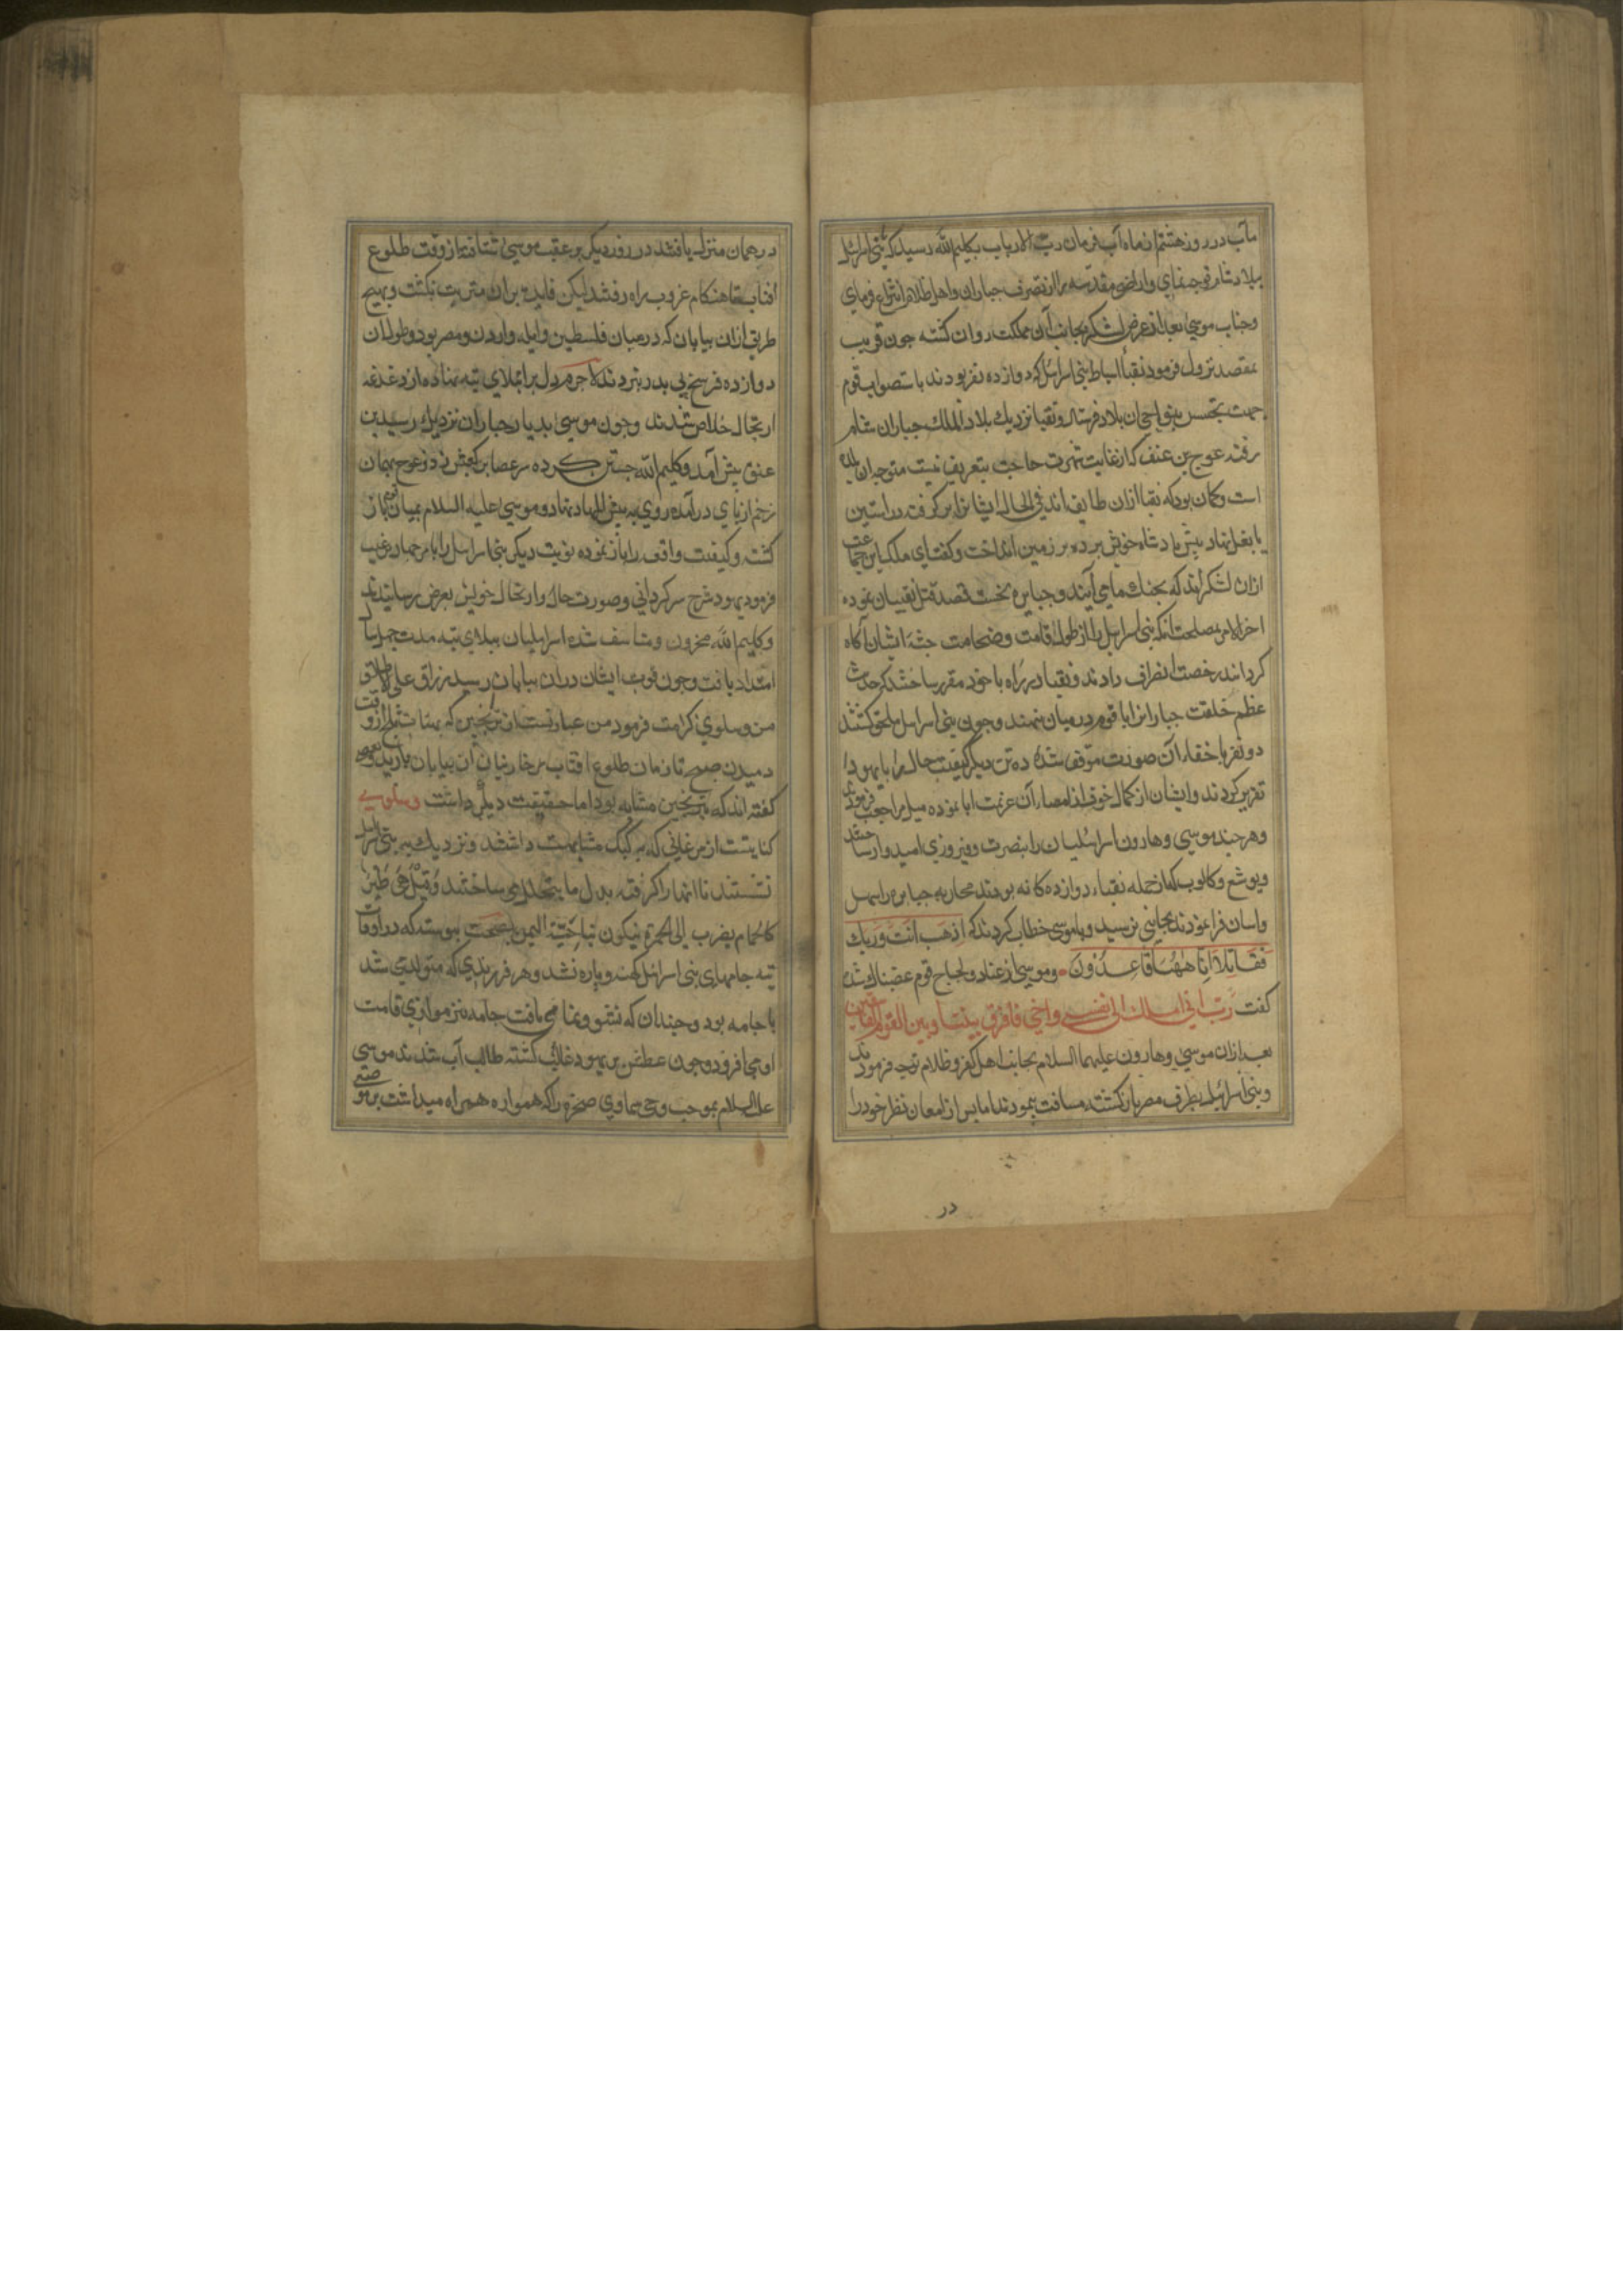 مآب در روز هشتم از ماه آب فرمان رب الارباب بکلیم الله رسید که بنی اسرائیل
بلاد شام توجه نمای و اراضی مقدسه را از تصرف جباران و اهل ظلام انتزاع فرمای
و جناب موسی بعد از عرض لشکر بجانب آن مملکت روان کشته جون قریب
بمقصد نزول فرمود نقبأ اسباط بنی اسرائیل که دوازده نفر بودند باستصواب قوم
جهت تجسس بنواحی ان بلاد فرستاد و نقبا نزدیک بلاد الملک جباران شام
رفته عوج بن عنق که از غایت شهرت حاجت بتعریف نیست متوجه ان بلده
است و کمان بود که نقبا ازان طایفه اند فی الحال ایشانرا بر کرفته در استین
یا بغل نهاد پیش پادشاه خویش برده بر زمین انداخت و کفت ای ملک این جماعت
ازان لشکر اند که بجنک ما می آیند و جبابره نخست قصد قتل نقیبان نموده
اخر الامر مصلحت انکه بنی اسرائیل را از طول قامت و ضخامت جثهٔ ایشان آکاه
کردانند رخصت انصراف دادند و نقبا در راه با خود مقرر ساختند که حدیث
عظم خلقت جبارانرا با قوم در میان ننهند و جون بنی اسرائیل ملحق کشتند
دو نفر باخفاء آن صورت موفق شده ده تن دیکر کیفیت حال را با یهودا
تقریر کردند و ایشان از کمال خوف از امصار آن عزیمت ابا نموده میل مراجعت فرمودند
و هر چند موسی و هارون اسرائیلیان را بنصرت و فیروزی امیدوار ساختند
و یوشع و کالوب که از جمله نقباء دوازده کانه بودند محاربه جبابره را سهل
و اسان فرا نمودند بجایی نرسید و با موسی خطاب کردند که اذهب انت و ربک
فَقَاتِلَا اِنَّا هٰهُنَا قَاعِدُوْنَ و موسی از عناد و لجاج قوم غضبناک شده
کفت رب انی لا املک الا نفسی و اخی فافرق بیننا و بین القوم الفاسقین
بعد ازان موسی و هارون علیهما السلام بجانب اهل کفر و ظلام توجه فرمودند
و بنی اسرائیل بطرف مصر باز کشتند مسافت پیمودند اما پس از امعان نظر خود را
در
در همان منزل یافتند در روز دیکر بر عقب موسی شتافته از وقت طلوع
افتاب تا هنکام غروب براه رفتند لیکن فایده بران مترتب نکشت و بهیج
طریق ازان بیابان که در میان فلسطین و ایله و اردن و مصر بود و طول ان
دوازده فرسخ پی بدر نبردند لاجرم دل بر ابتلای تیه نهاده از دغدغه
ارتحال خلاص شدند و جون موسی بدیار جباران نزدیک رسید بن
عنق پیش آمد و کلیم الله جستن کرده سر عصا بر کعبش زد و عوج بهمان
زخم از پای درآمده روی به بئس المهاد نهاد و موسی علیه السلام بمیان قوم باز
کشته و کیفیت واقعه را باز نموده نوبت دیکر بنی اسرائیل را با مر جهاد ترغیب
فرمود یهود شرح سرکردانی و صورت حال و ارتحال خویش بعرض رسانیدند
و کلیم الله محزون و متاسف شده اسرائیلیان ببلای تیه مدت چهل سال
امتداد یافت و جون قوت ایشان دران بیابان رسید رزاق علی الاطلاق
من و سلوی کرامت فرمود من عبارتست از ترنجبین که بمثابت ثلج از وقت
دمیدن صبح تا زمان طلوع افتاب بر خار بنیان آن بیابان باریدی و بعضی
کفته اند که بترنجبین مشابه بود اما حقیقت دیکر داشت و سلوی
کنایتست از مرغانی که به کبک مشابهت داشتند و نزدیک به بنی اسرائیل
نشستند تا انها را کرفته بدل ما یتحلل می ساختند وَقِیْلَ هُیَ طَیْرٌ
کالحمام یضرب الی الحمرة یکون بناحیة الیمن بصحت پیوسته که در اوقات
تیه جامهای بنی اسرائیل کهنه و پاره نشد و هر فرزندی که متولد می شد
با جامه بود و چندان که نشو و نما می یافت جامه نیز موازی قامت
او می افزود و جون عطش بر یهود غالب کشته طالب آب شدند موسی
علیه السلام بموجب وحی سماوی صخره را که همواره همراه میداشت بر موضعی